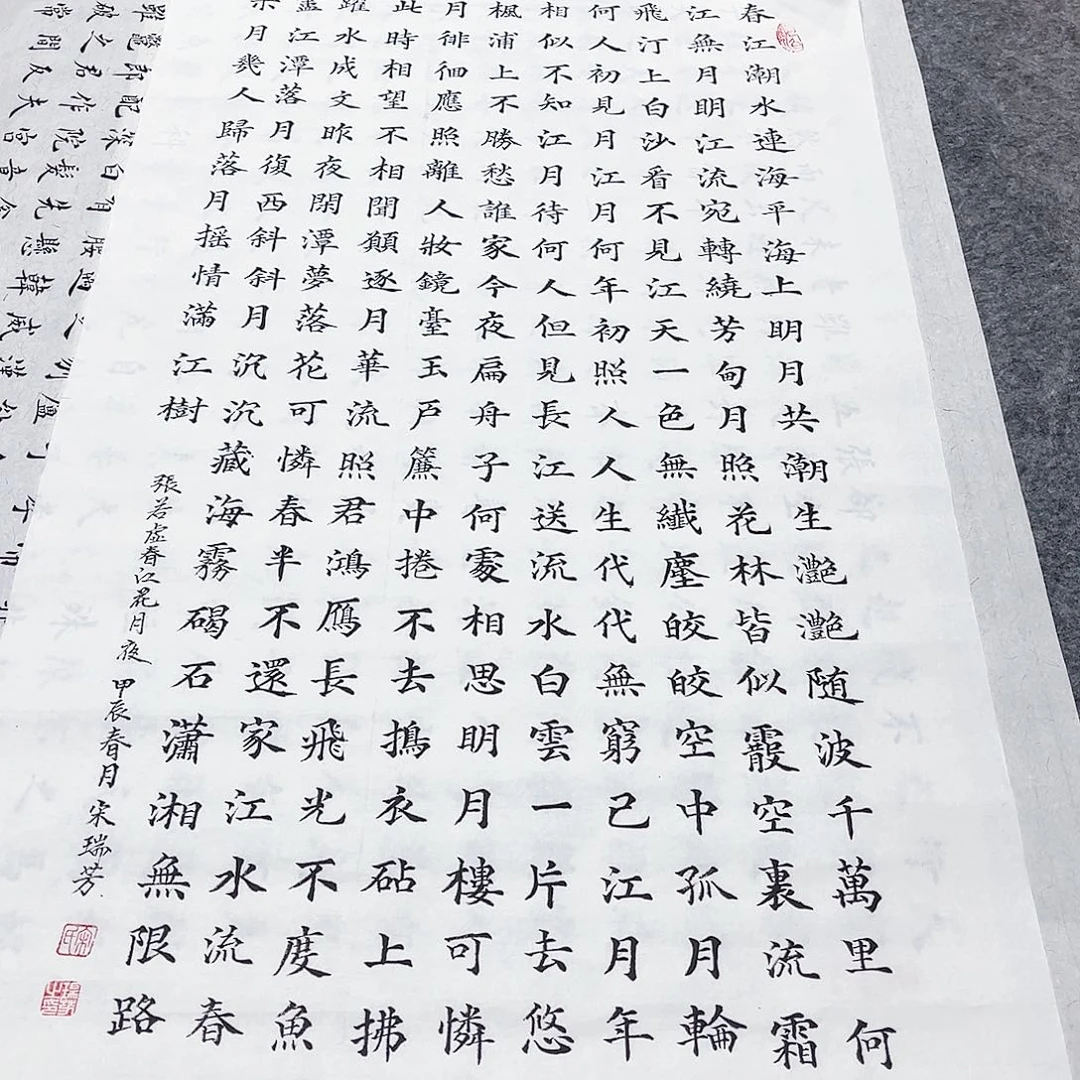 春江潮水連海平海上明月共潮生灔灔随波千萬里何
江無月明江流宛轉繞芳甸月照花林皆似霰空裏流霜
飛汀上白沙看不見江天一色無纖塵皎皎空中孤月輪
何人初見月江月何年初照人人生代代無窮已江月年
相似不知江月待何人但見長江送流水白雲一片去悠
楓浦上不勝愁誰家今夜扁舟子何處相思明月樓可憐
月徘徊應照離人妝鏡臺玉戶簾中捲不去搗衣砧上拂
此時相望不相聞願逐月華流照君鴻雁長飛光不度魚
躍水成文昨夜閒潭夢落花可憐春半不還家江水流春
盡江潭落月復西斜斜月沉沉藏海霧碣石瀟湘無限路
月幾人歸落月摇情滿江樹
張若虛春江花月夜 甲辰春月宋瑞芳